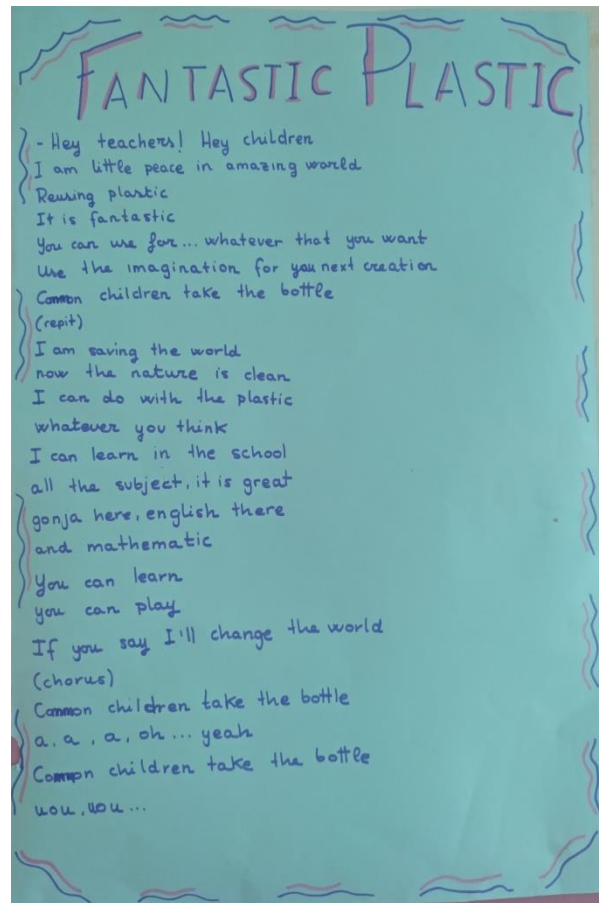 FANTASTIC PLASTIC
- Hey teachers! Hey children
I am little peace in amazing world
Reusing plastic
It is fantastic
You can use for... whatever that you want
Use the imagination for you next creation
Common children take the bottle
(repit)
I am saving the world
now the nature is clean
I can do with the plastic
whatever you think
I can learn in the school
all the subject, it is great
gonja here, english there
and mathematic
You can learn
you can play
If you say I'll change the world
(chorus)
Common children take the bottle
a, a, a, oh... yeah
Common children take the bottle
uou, uou...